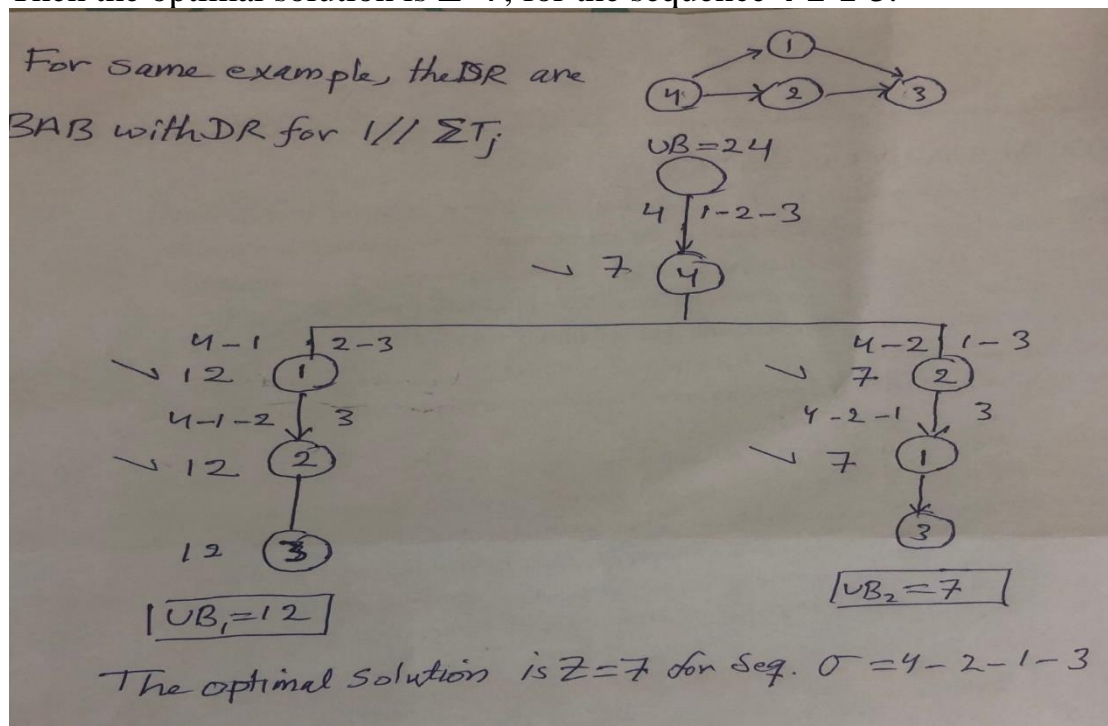 Then the optimal solution is Z=7, for the sequence 4-2-1-3.
For same example, the DR are
BAB with DR for 1// ΣTj
1
4 2 3
UB=24
4 1-2-3
7 4
4-1 2-3
12 1
4-1-2 3
12 2
12 3
UB1=12
4-2 1-3
7 2
4-2-1 3
7 1
3
UB2=7
The optimal solution is Z=7 for Seq. σ=4-2-1-3